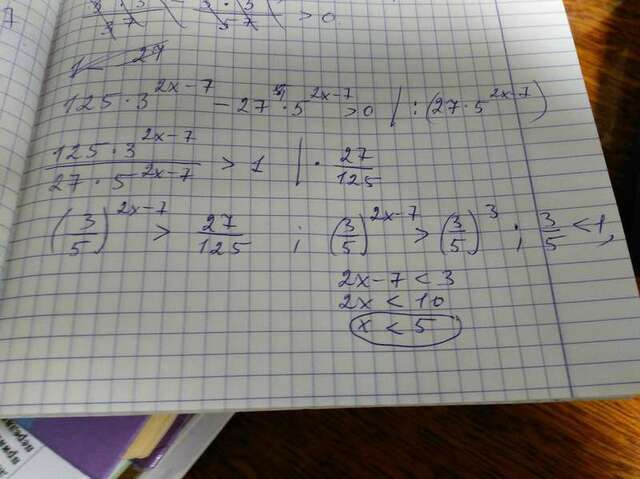 125·3^{2x-7} - 27·5^{2x-7} > 0 | : (27·5^{2x-7})
\frac{125·3^{2x-7}}{27·5^{2x-7}} > 1 | · \frac{27}{125}
(\frac{3}{5})^{2x-7} > \frac{27}{125} ; (\frac{3}{5})^{2x-7} > (\frac{3}{5})^3 ; \frac{3}{5} < 1,
2x-7 < 3
2x < 10
x < 5